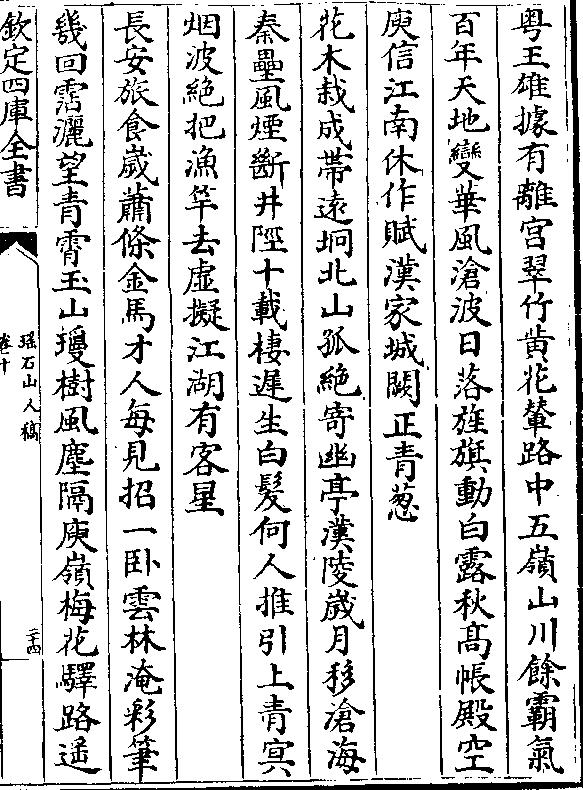 粤王雄據有離宫翠竹黄花輦路中五嶺山川餘霸氣
百年天地變華風滄波日落旌旗動白露秋髙帳殿空
庾信江南休作賦漢家城闕正青葱
花木栽成帶逺坰北山孤絶寄幽亭漢陵歲月移滄海
秦壘風煙斷井陘十載棲遲生白髮何人推引上青冥
烟波絶把漁竿去虚擬江湖有客星
長安旅食歲蕭條金馬才人每見招一卧雲林淹彩筆
幾回霑灑望青霄玉山瓊樹風塵隔庾嶺梅花驛路遥
欽定四庫全書
瑶石山人稿
卷十
二十四